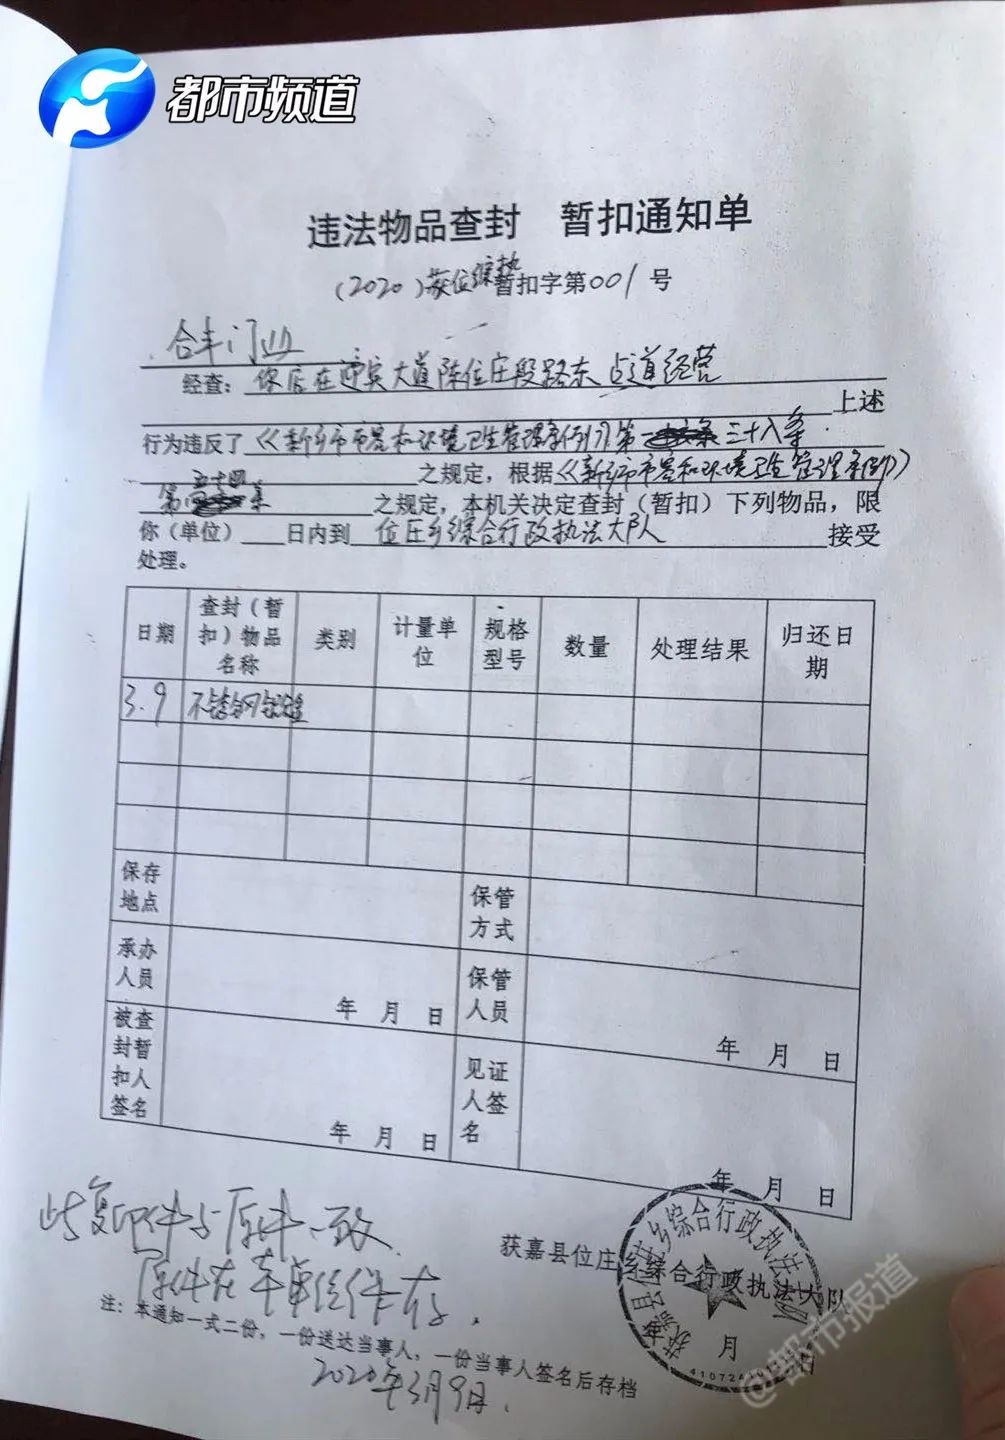 都市频道
违法物品查封 暂扣通知单
（2020）获位综执暂扣字第001号
合丰门业
经查：你店在迎宾大道陈位庄段路东占道经营
上述
行为违反了《新乡市市容和环境卫生管理条例》第三十八条
之规定，根据《新乡市市容和环境卫生管理条例》
第五十四条之规定，本机关决定查封（暂扣）下列物品，限
你（单位） 日内到 位庄乡综合行政执法大队 接受
处理。
日期 查封（暂扣）物品名称 类别 计量单位 规格型号 数量 处理结果 归还日期
3.9 不锈钢
保存地点 保管方式
承办人员 年 月 日 保管人员 年 月 日
被查封暂扣人签名 年 月 日 见证人签名 年 月 日
此复印件与原件一致.
原件在本单位保存.
获嘉县位庄乡综合行政执法大队
年 月 日
注：本通知一式二份，一份送达当事人，一份当事人签名后存档
2020年3月9日.
获嘉县位庄乡综合行政执法大队
@都市报道